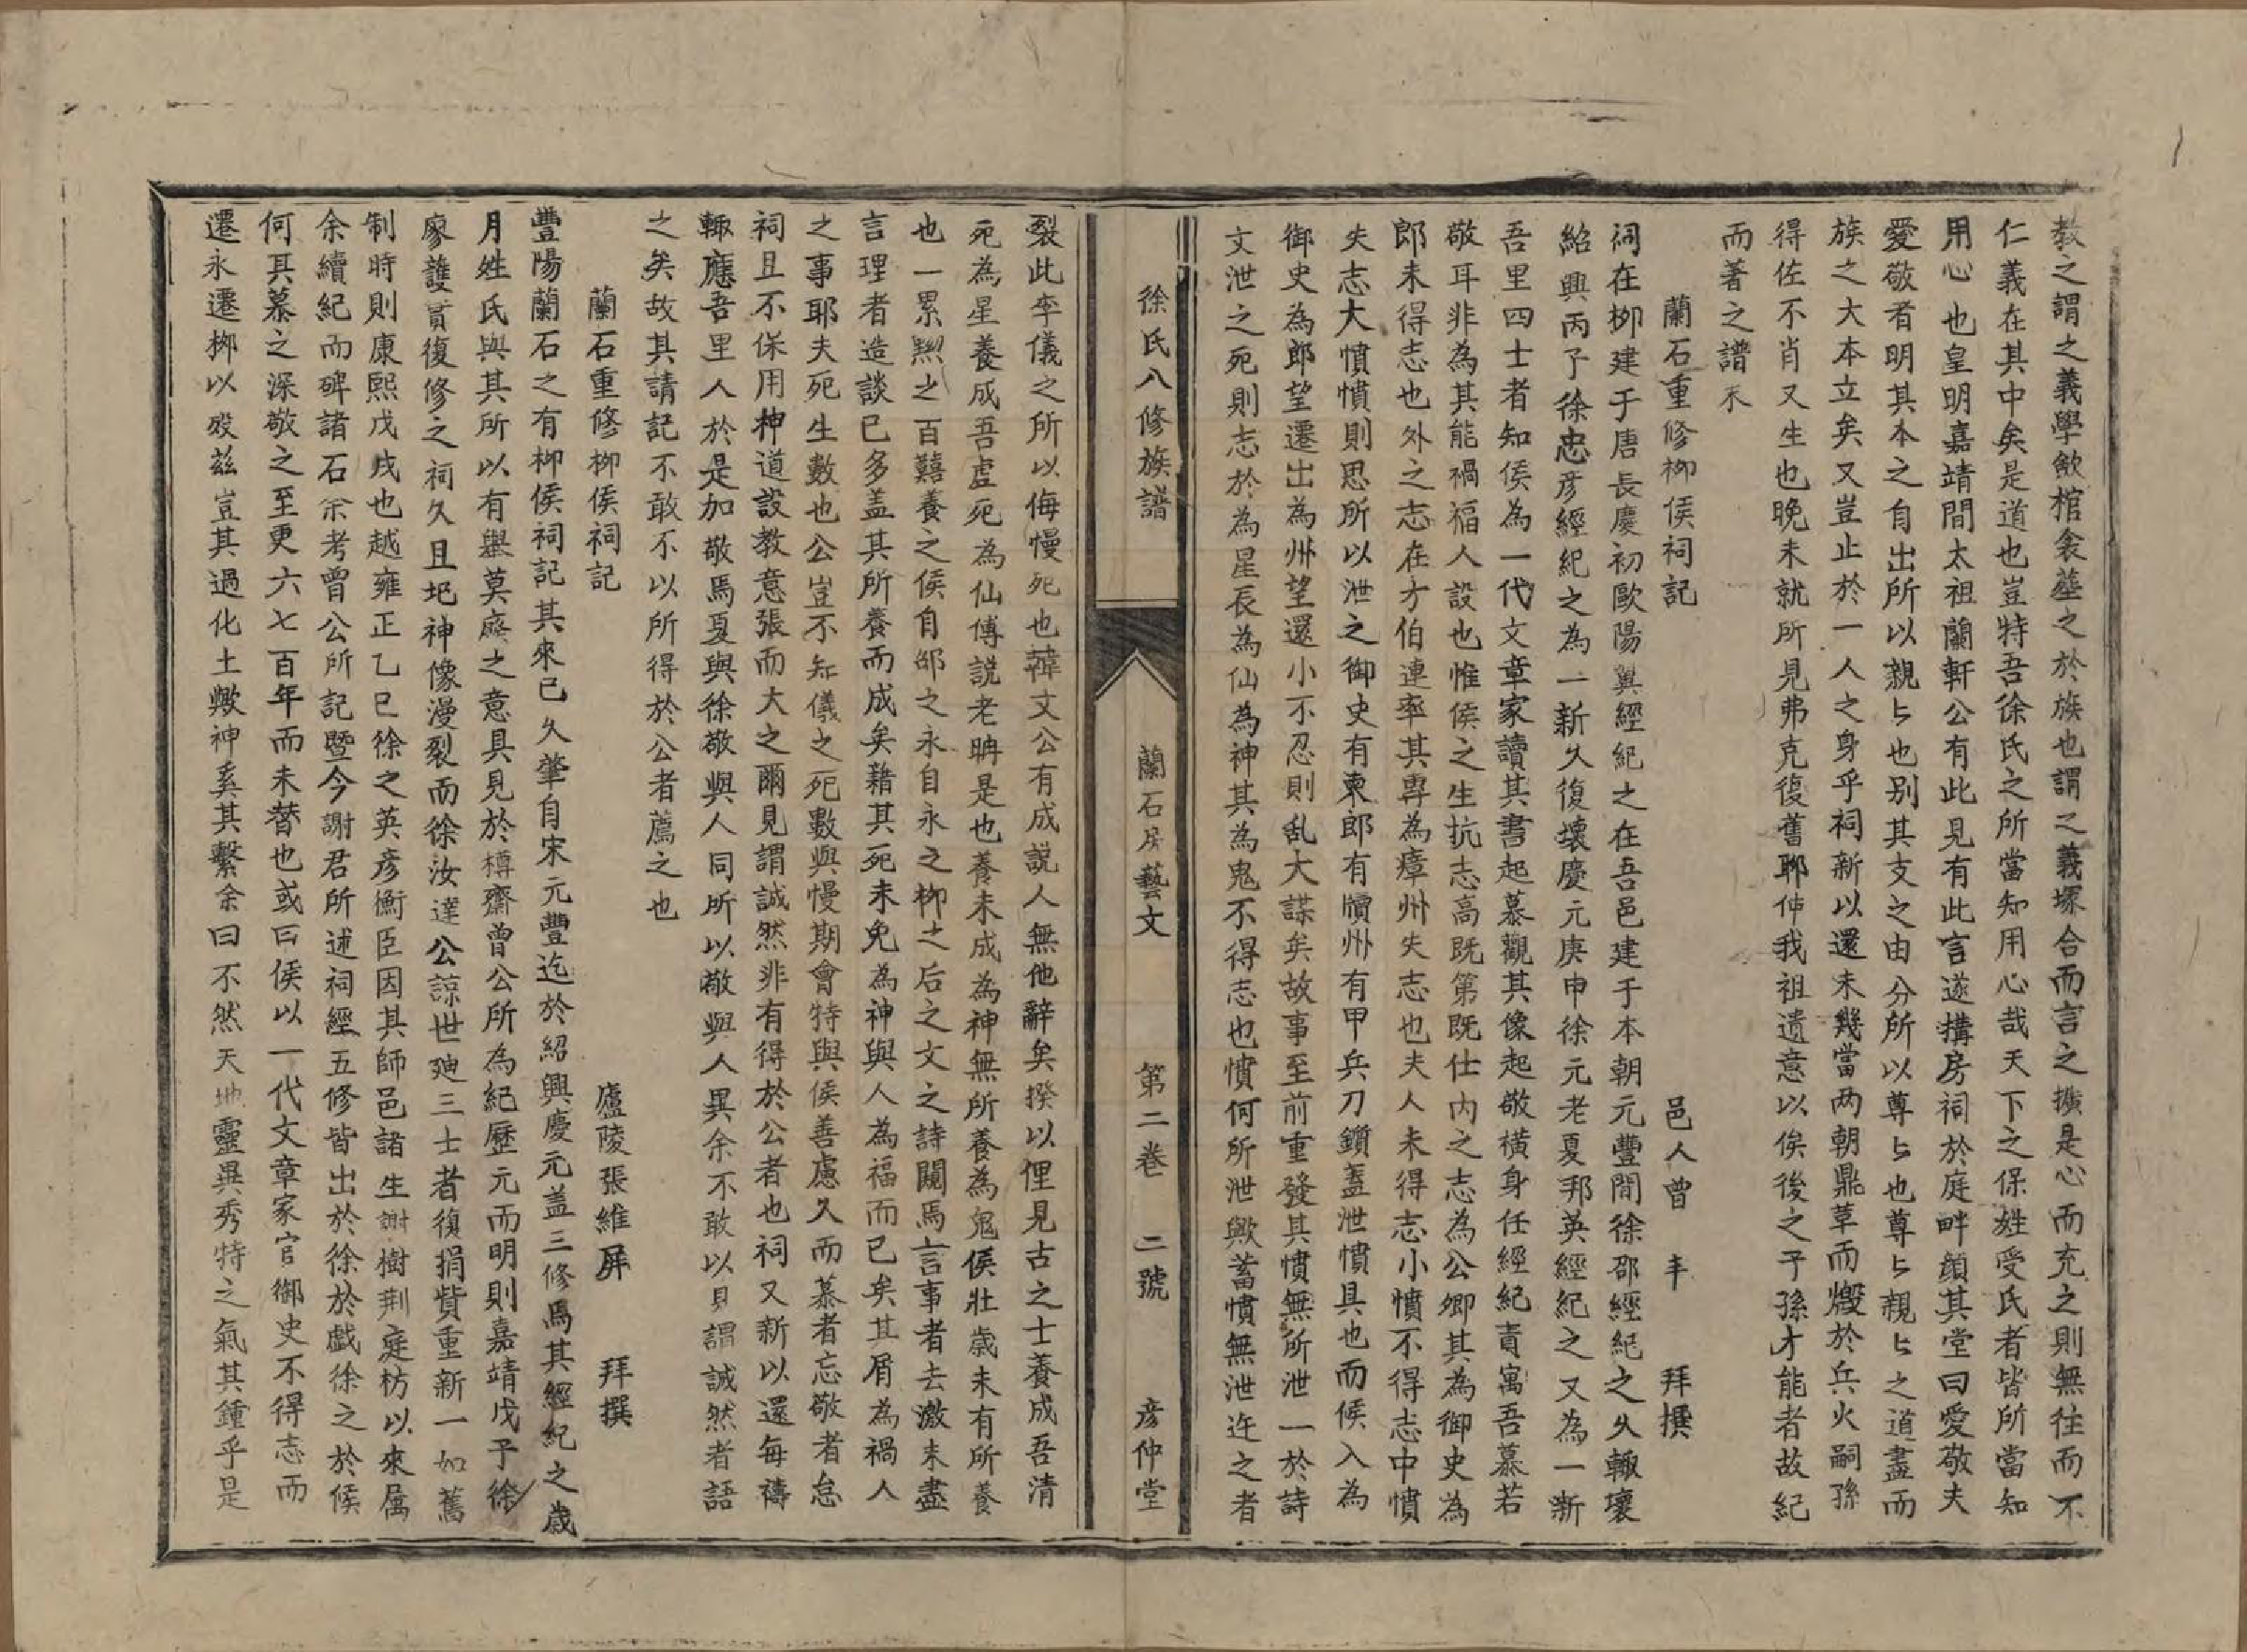 教之謂之義學歛棺衾塟之於族也謂之義塚合而言之擴是心而充之則無往而不
仁義在其中矣是道也豈特吾徐氏之所當知用心哉天下之保姓受氏者皆所當知
用心也皇明嘉靖間太祖蘭軒公有此見有此言遂搆房祠於庭畔顔其堂曰愛敬夫
愛敬者明其本之自出所以親㇉也别其支之由分所以尊㇉也尊㇉親㇉之道盡而
族之大本立矣又豈止於一人之身乎祠新以還未幾當两朝鼎草而燬於兵火嗣孫
得佐不肖又生也晚未就所見弗克復舊聊伸我祖遺意以俟後之子孫才能者故紀
而著之譜禾
蘭石重修柳侯祠記　邑人曾丰　拜撰
祠在柳建于唐長慶初歐陽翼經紀之在吾邑建于本朝元豐間徐邵經紀之久輙壞
紹興丙子徐忠彦經紀之為一新久復壞慶元庚申徐元老夏邦英經紀之又為一新
吾里四士者知侯為一代文章家讀其書起慕觀其像起敬橫身任經紀責寓吾慕若
敬耳非為其能禍福人設也惟侯之生抗志高既第既仕内之志為公卿其為御史為
郎未得志也外之志在方伯連率其專為瘴州失志也夫人未得志小憤不得志中憤
失志大憤憤則思所以泄之御史有柬郎有牘州有甲兵刀鑕盖泄憤具也而侯入為
御史為郎望遷出為州望還小不忍則乱大謀矣故事至前重發其憤無所泄一於詩
文泄之死則志於為星辰為仙為神其為鬼不得志也憤何所泄歟蓄憤無泄迕之者
徐氏八修族譜　蘭石房藝文　第二卷　二號　彦仲堂
裂此李儀之所以侮慢死也韓文公有成説人無他辭矣揆以俚見古之士養成吾清
死為星養成吾虗死為仙傅説老聃是也養未成為神無所養為鬼侯壯歲未有所養
也一累黙之百囏養之侯自邵之永自永之柳之后之文之詩閱焉言事者去激未盡
言理者造談已多盖其所養而成矣藉其死未免為神與人為福而已矣其屑為禍人
之事耶夫死生數也公豈不知儀之死數與慢期會特與侯善慮久而慕者忘敬者怠
祠且不保用神道設教意張而大之爾見謂誠然非有得於公者也祠又新以還每禱
輙應吾里人於是加敬焉夏與徐敬與人同所以敬與人異余不敢以見謂誠然者語
之矣故其請記不敢不以所得於公者薦之也
蘭石重修柳侯祠記　廬陵張維屏　拜撰
豐陽蘭石之有柳侯祠記其來已久肇自宋元豐迄於紹興慶元盖三修焉其經紀之歲
月姓氏與其所以有舉莫廢之意具見於樽齋曾公所為紀歷元而明則嘉靖戊子徐
廖護貫復修之祠久且圯神像漫裂而徐汝達公諒世廸三士者復捐貲重新一如舊
制時則康熙戊戌也越雍正乙巳徐之英彦衡臣因其師邑諸生謝樹荆庭枋以來属
余續紀而碑諸石余考曾公所記暨今謝君所述祠經五修皆出於徐於戱徐之於侯
何其慕之深敬之至更六七百年而未替也或曰侯以一代文章家官御史不得志而
遷永遷柳以歿兹豈其過化土燉神奚其繫余曰不然天地靈異秀特之氣其鍾乎是